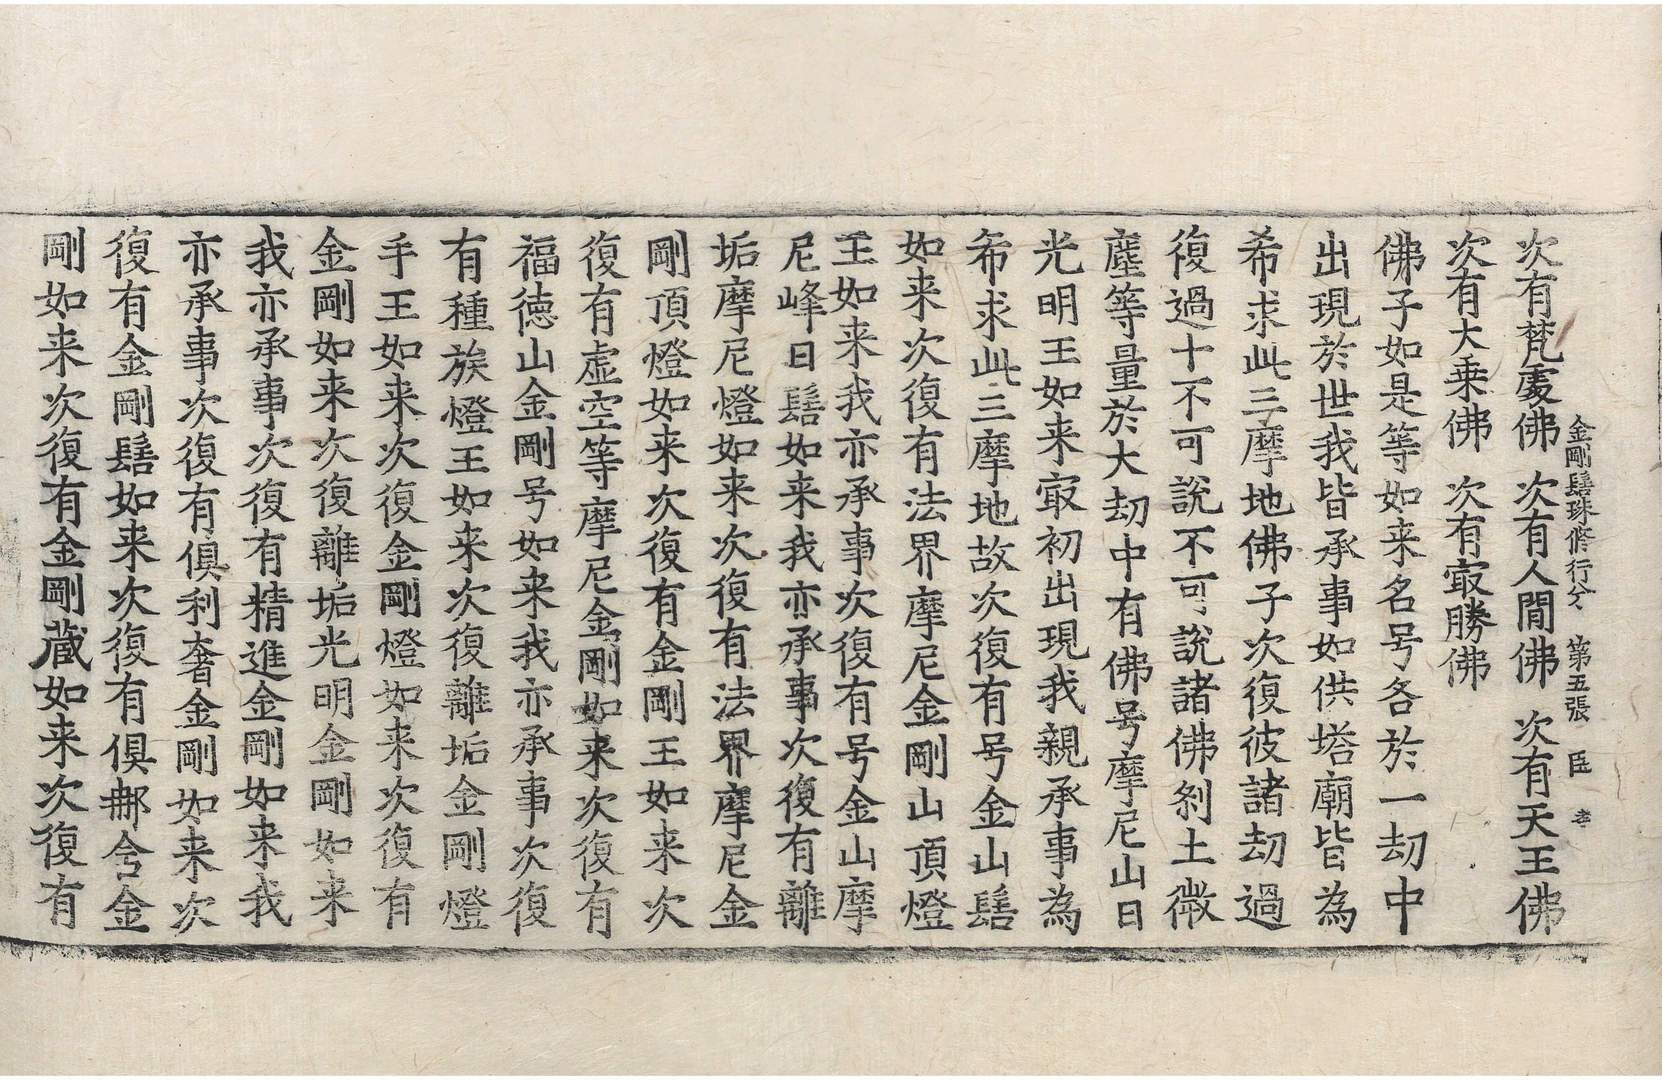 金剛髻珠修行分　第五張　臣
次有梵處佛　次有人間佛　次有天王佛
次有大乘佛　次有㝡勝佛
佛子如是等如来名号各於一劫中
出現於世我皆承事如供塔廟皆為
希求此三摩地佛子次復彼諸劫過
復過十不可說不可說諸佛刹土微
塵等量於大劫中有佛号摩尼山日
光明王如来㝡初出現我親承事為
希求此三摩地故次復有号金山髻
如来次復有法界摩尼金剛山頂燈
王如来我亦承事次復有号金山摩
尼峰日髻如来我亦承事次復有離
垢摩尼燈如来次復有法界摩尼金
剛頂燈如来次復有金剛王如来次
復有虛空等摩尼金剛如来次復有
福德山金剛号如来我亦承事次復
有種族燈王如来次復離垢金剛燈
手王如来次復金剛燈如来次復有
金剛如来次復離垢光明金剛如来
我亦承事次復有精進金剛如来我
亦承事次復有俱利奢金剛如来次
復有金剛髻如来次復有俱㖠含金
剛如来次復有金剛藏如来次復有